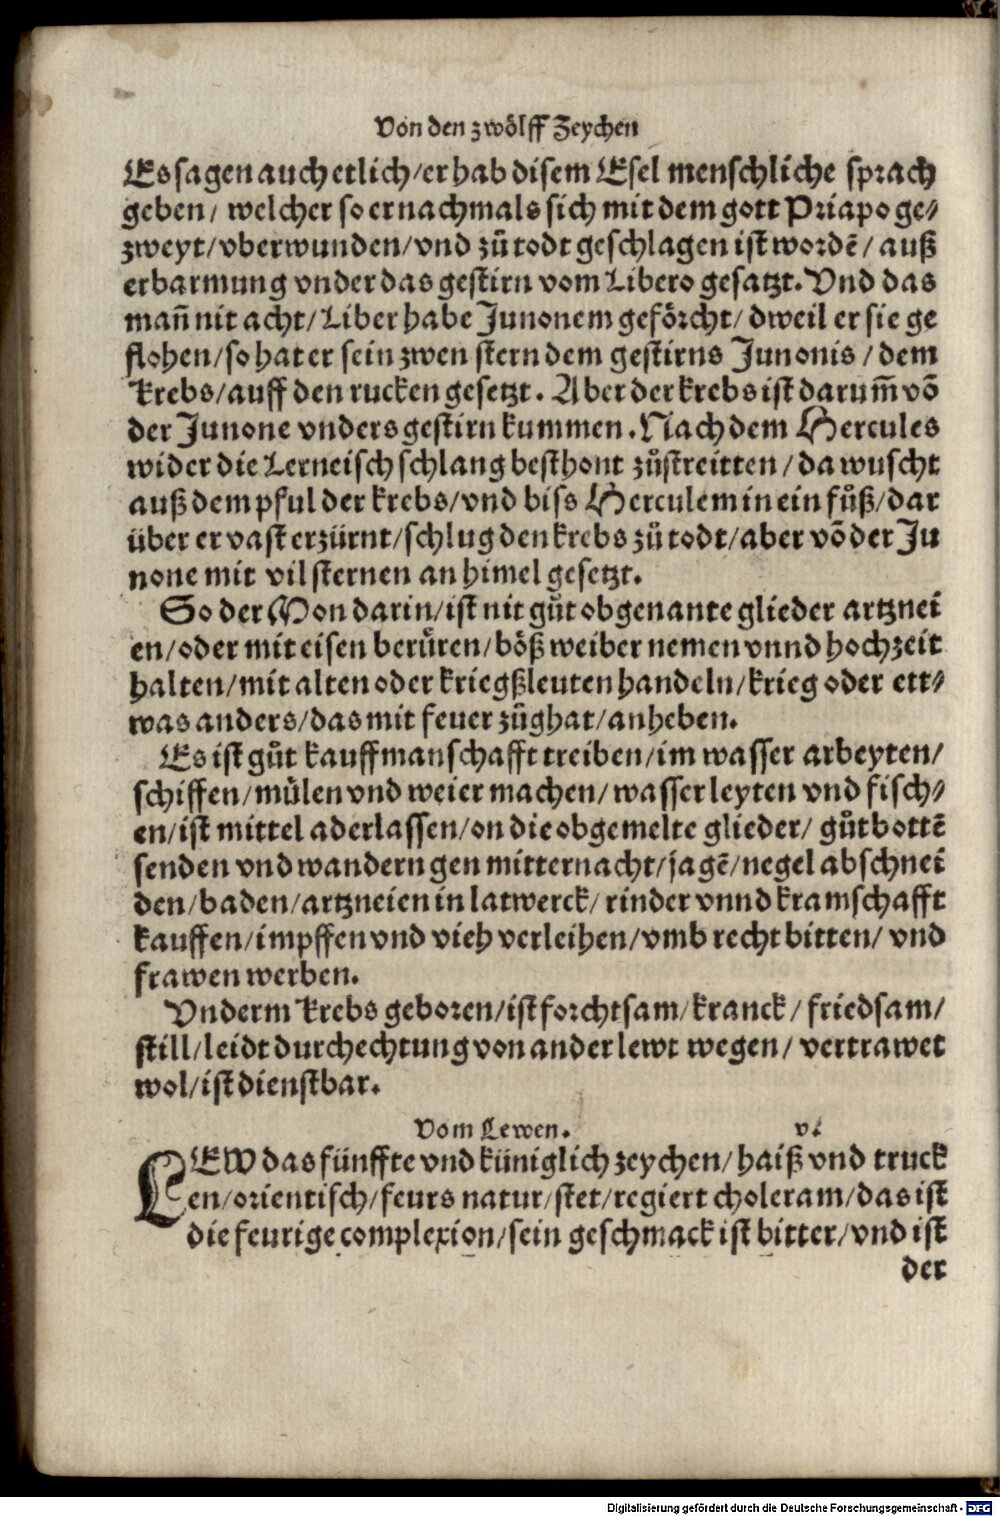 Von den zwoͤlff Zeychen
Es sagen auch etlich/er hab disem Esel menschliche sprach
geben/ welcher so er nachmals sich mit dem gott Priapo ge⸗
zweyt/vberwunden/vnd zuͦ todt geschlagen ist wordē/ auß
erbarmung vnder das gestirn vom Libero gesatzt. Vnd das
mañ nit acht/Liber habe Junonem gefoͤrcht/ dweil er sie ge
flohen/so hat er sein zwen stern dem gestirns Junonis/dem
Krebs/auff den rucken gesetzt. Aber der krebs ist darum̄ vō
der Junone vnders gestirn kummen. Nach dem Hercules
wider die Lerneisch schlang besthont zuͦstreitten/da wuscht
auß dem pful der krebs/vnd biss Herculem in ein fuͦß/dar
über er vast erzürnt/schlug den krebs zuͦ todt/aber vō der Ju
none mit vil sternen an himel gesetzt.
So der Mon darin/ist nit guͦt obgenante glieder artznei
en/oder mit eisen beruͤren/boͤß weiber nemen vnnd hochzeit
halten/mit alten oder kriegßleuten handeln/krieg oder ett⸗
was anders/das mit feuer zuͦghat/anheben.
Es ist guͦt kauffmanschafft treiben/im wasser arbeyten/
schiffen/muͤlen vnd weier machen/wasser leyten vnd fisch⸗
en/ist mittel aderlassen/on die obgemelte glieder/ guͦt bottē
senden vnd wandern gen mitternacht/jagē/negel abschnei
den/baden/artzneien in latwerck/rinder vnnd kramschafft
kauffen/impffen vnd vieh verleihen/vmb recht bitten/ vnd
frawen werben.
Vnderm Krebs geboren/ist forchtsam/kranck/friedsam/
still/leidt durchechtung von ander lewt wegen/ vertrawet
wol/ist dienstbar.
Vom Lewen. vi
LEW das fünffte vnd küniglich zeychen/haiß vnd truck
en/orientisch/feurs natur/stet/regiert choleram/das ist
die feurige complexion/sein geschmack ist bitter/vnd ist
der
Digitalisierung gefördert durch die Deutsche Forschungsgemeinschaft - DFG